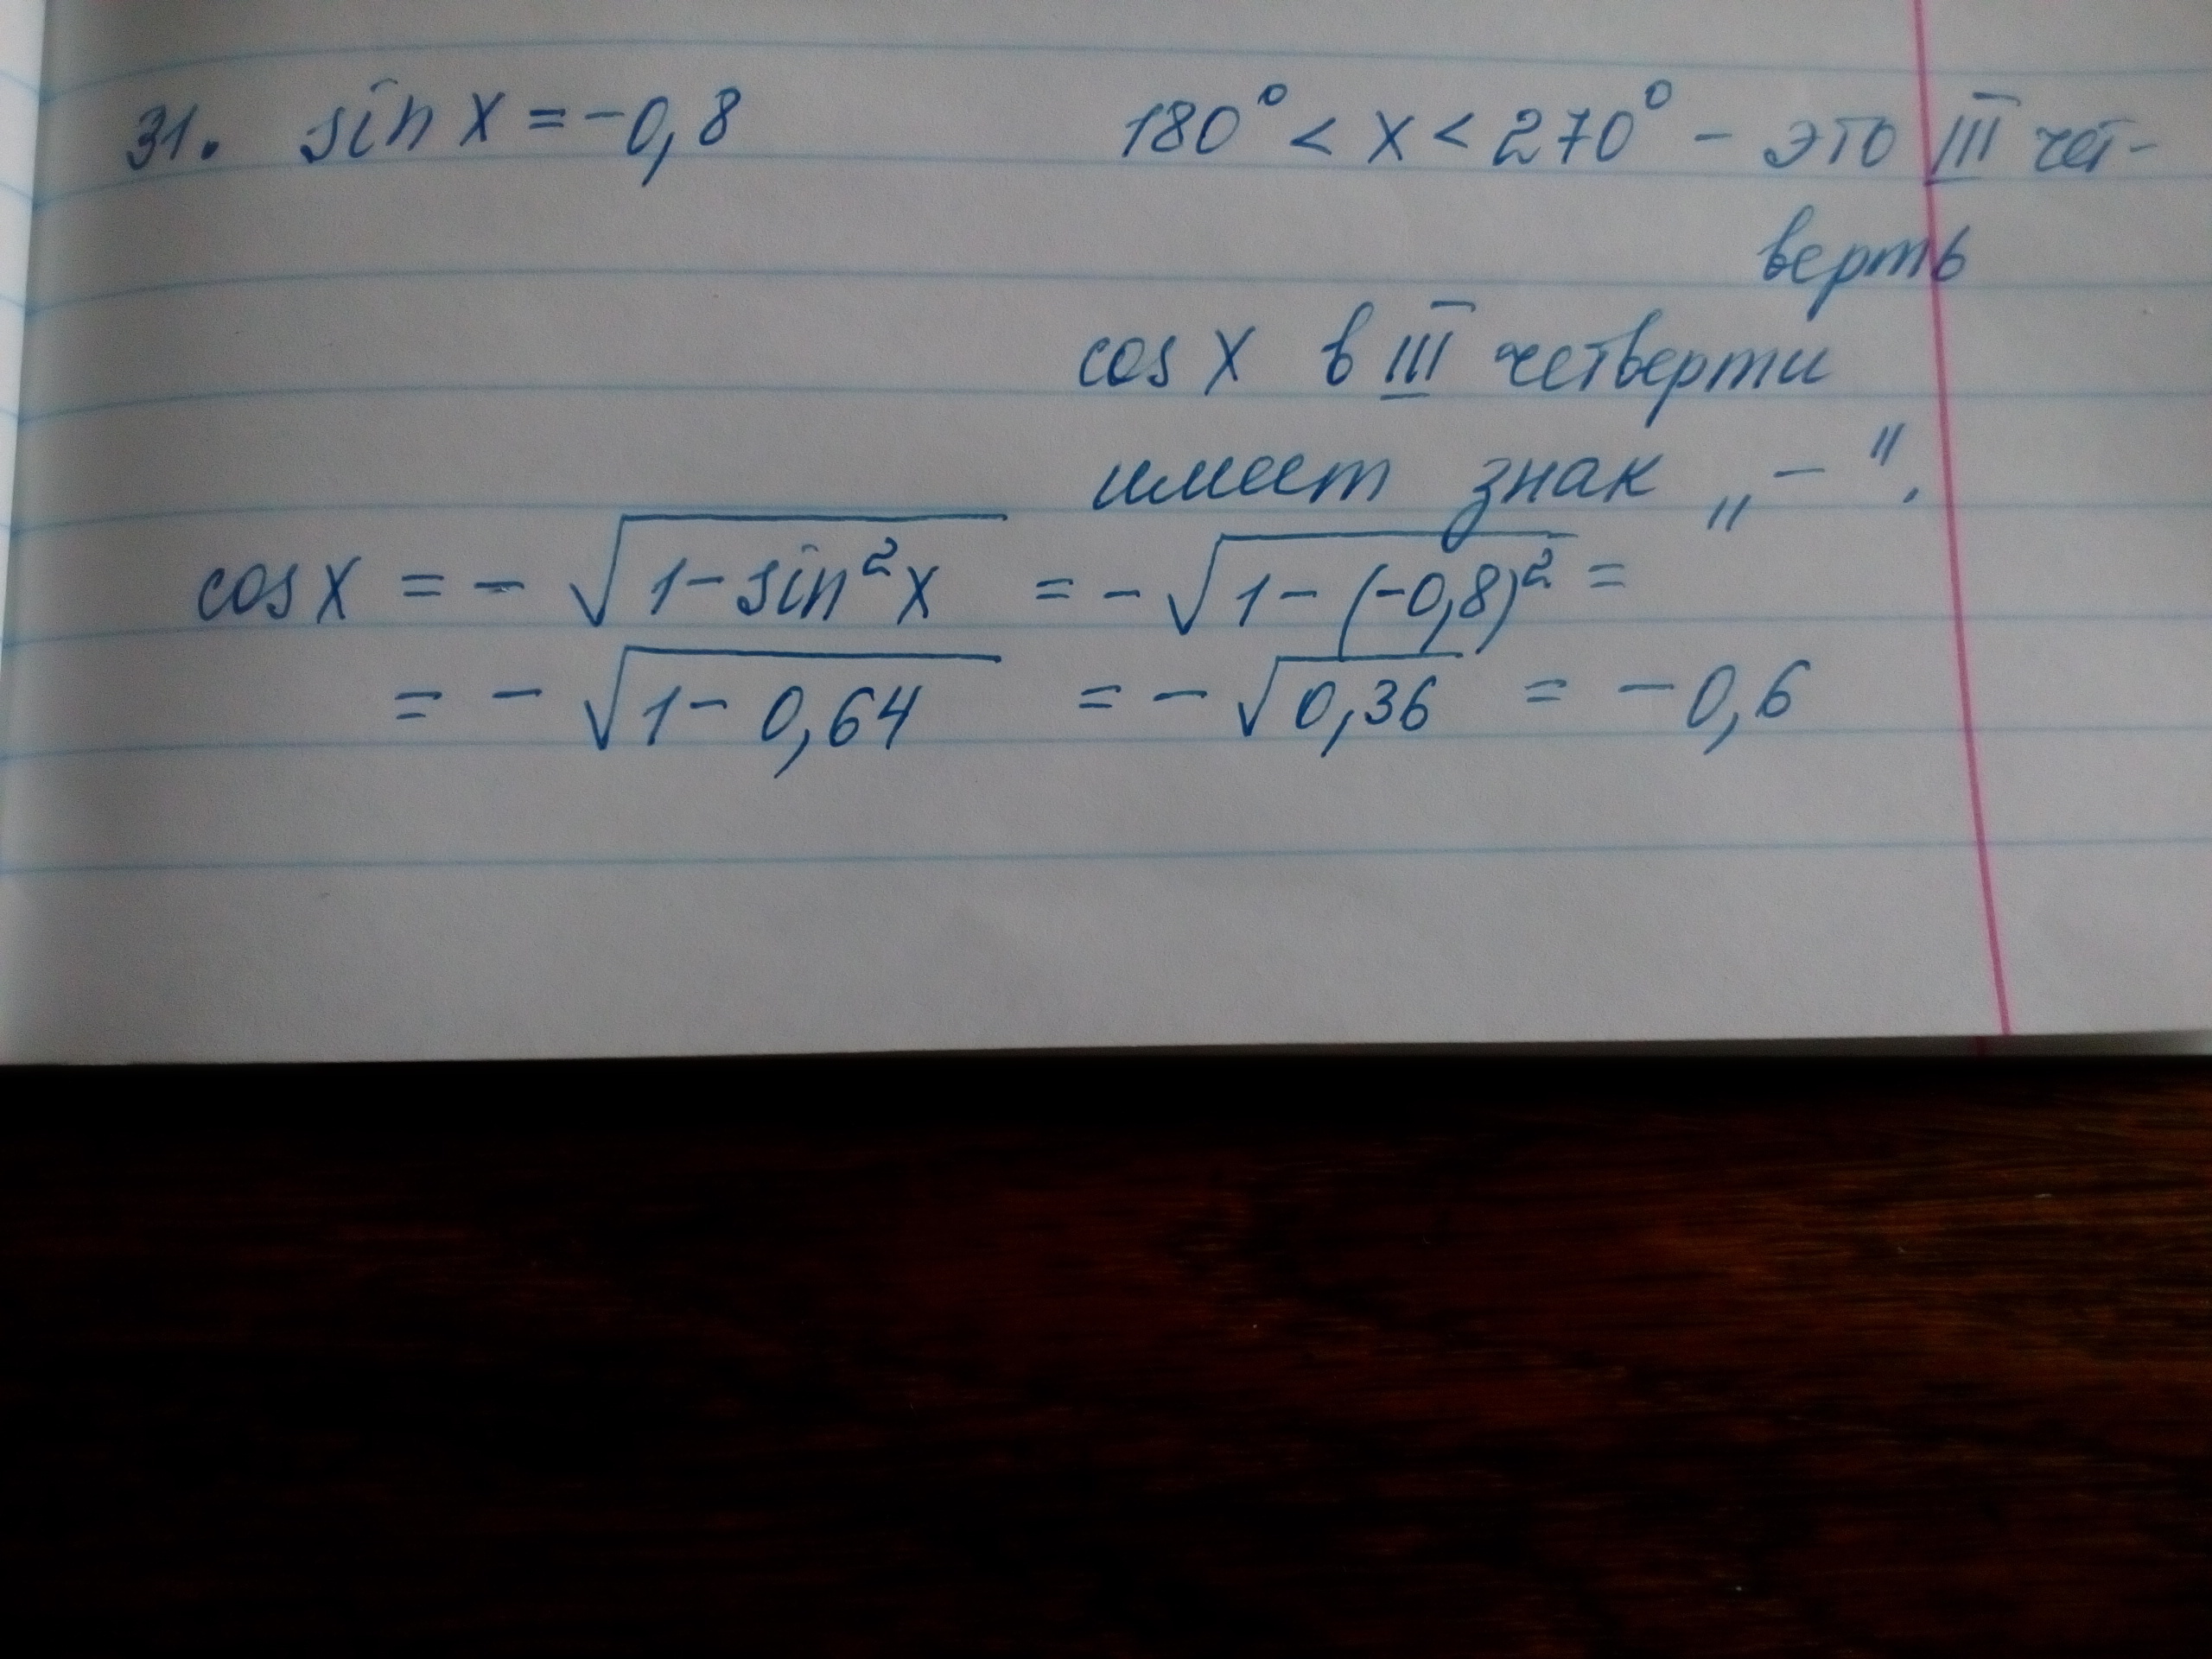 31. sin x = -0,8 180° < x < 270° - это III чет-
верть
cos x в III четверти
имеет знак „ - ".
cos x = - √(1 - sin²x) = - √(1 - (-0,8)²) =
= - √(1 - 0,64) = - √(0,36) = - 0,6